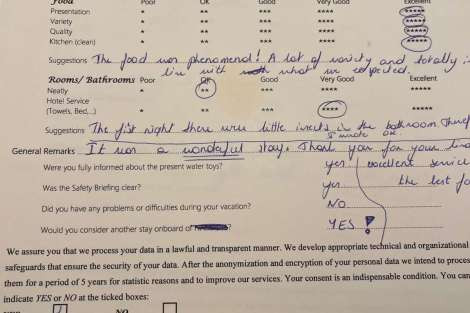 Food Poor OK Good Very Good Excellent
Presentation * ** *** **** *****
Variety * ** *** **** *****
Quality * ** *** **** *****
Kitchen (clean) * ** *** **** *****
Suggestions The food was phenomenal! A lot of variety and totally in
line with what we expected.
Rooms/ Bathrooms Poor OK Good Very Good Excellent
Neatly * ** *** **** *****
Hotel Service
(Towels, Bed,...) * ** *** **** *****
Suggestions The first night there were little insects in the bathroom
General Remarks It was a wonderful stay. Thank you for your
Were you fully informed about the present water toys? yes excellent service
Was the Safety Briefing clear? yes the best
Did you have any problems or difficulties during your vacation? NO
Would you consider another stay onboard of YES!
We assure you that we process your data in a lawful and transparent manner. We develop appropriate technical and organizational
safeguards that ensure the security of your data. After the anonymization and encryption of your personal data we intend to proces
them for a period of 5 years for statistic reasons and to improve our services. Your consent is an indispensable condition. You can
indicate YES or NO at the ticked boxes:
NO